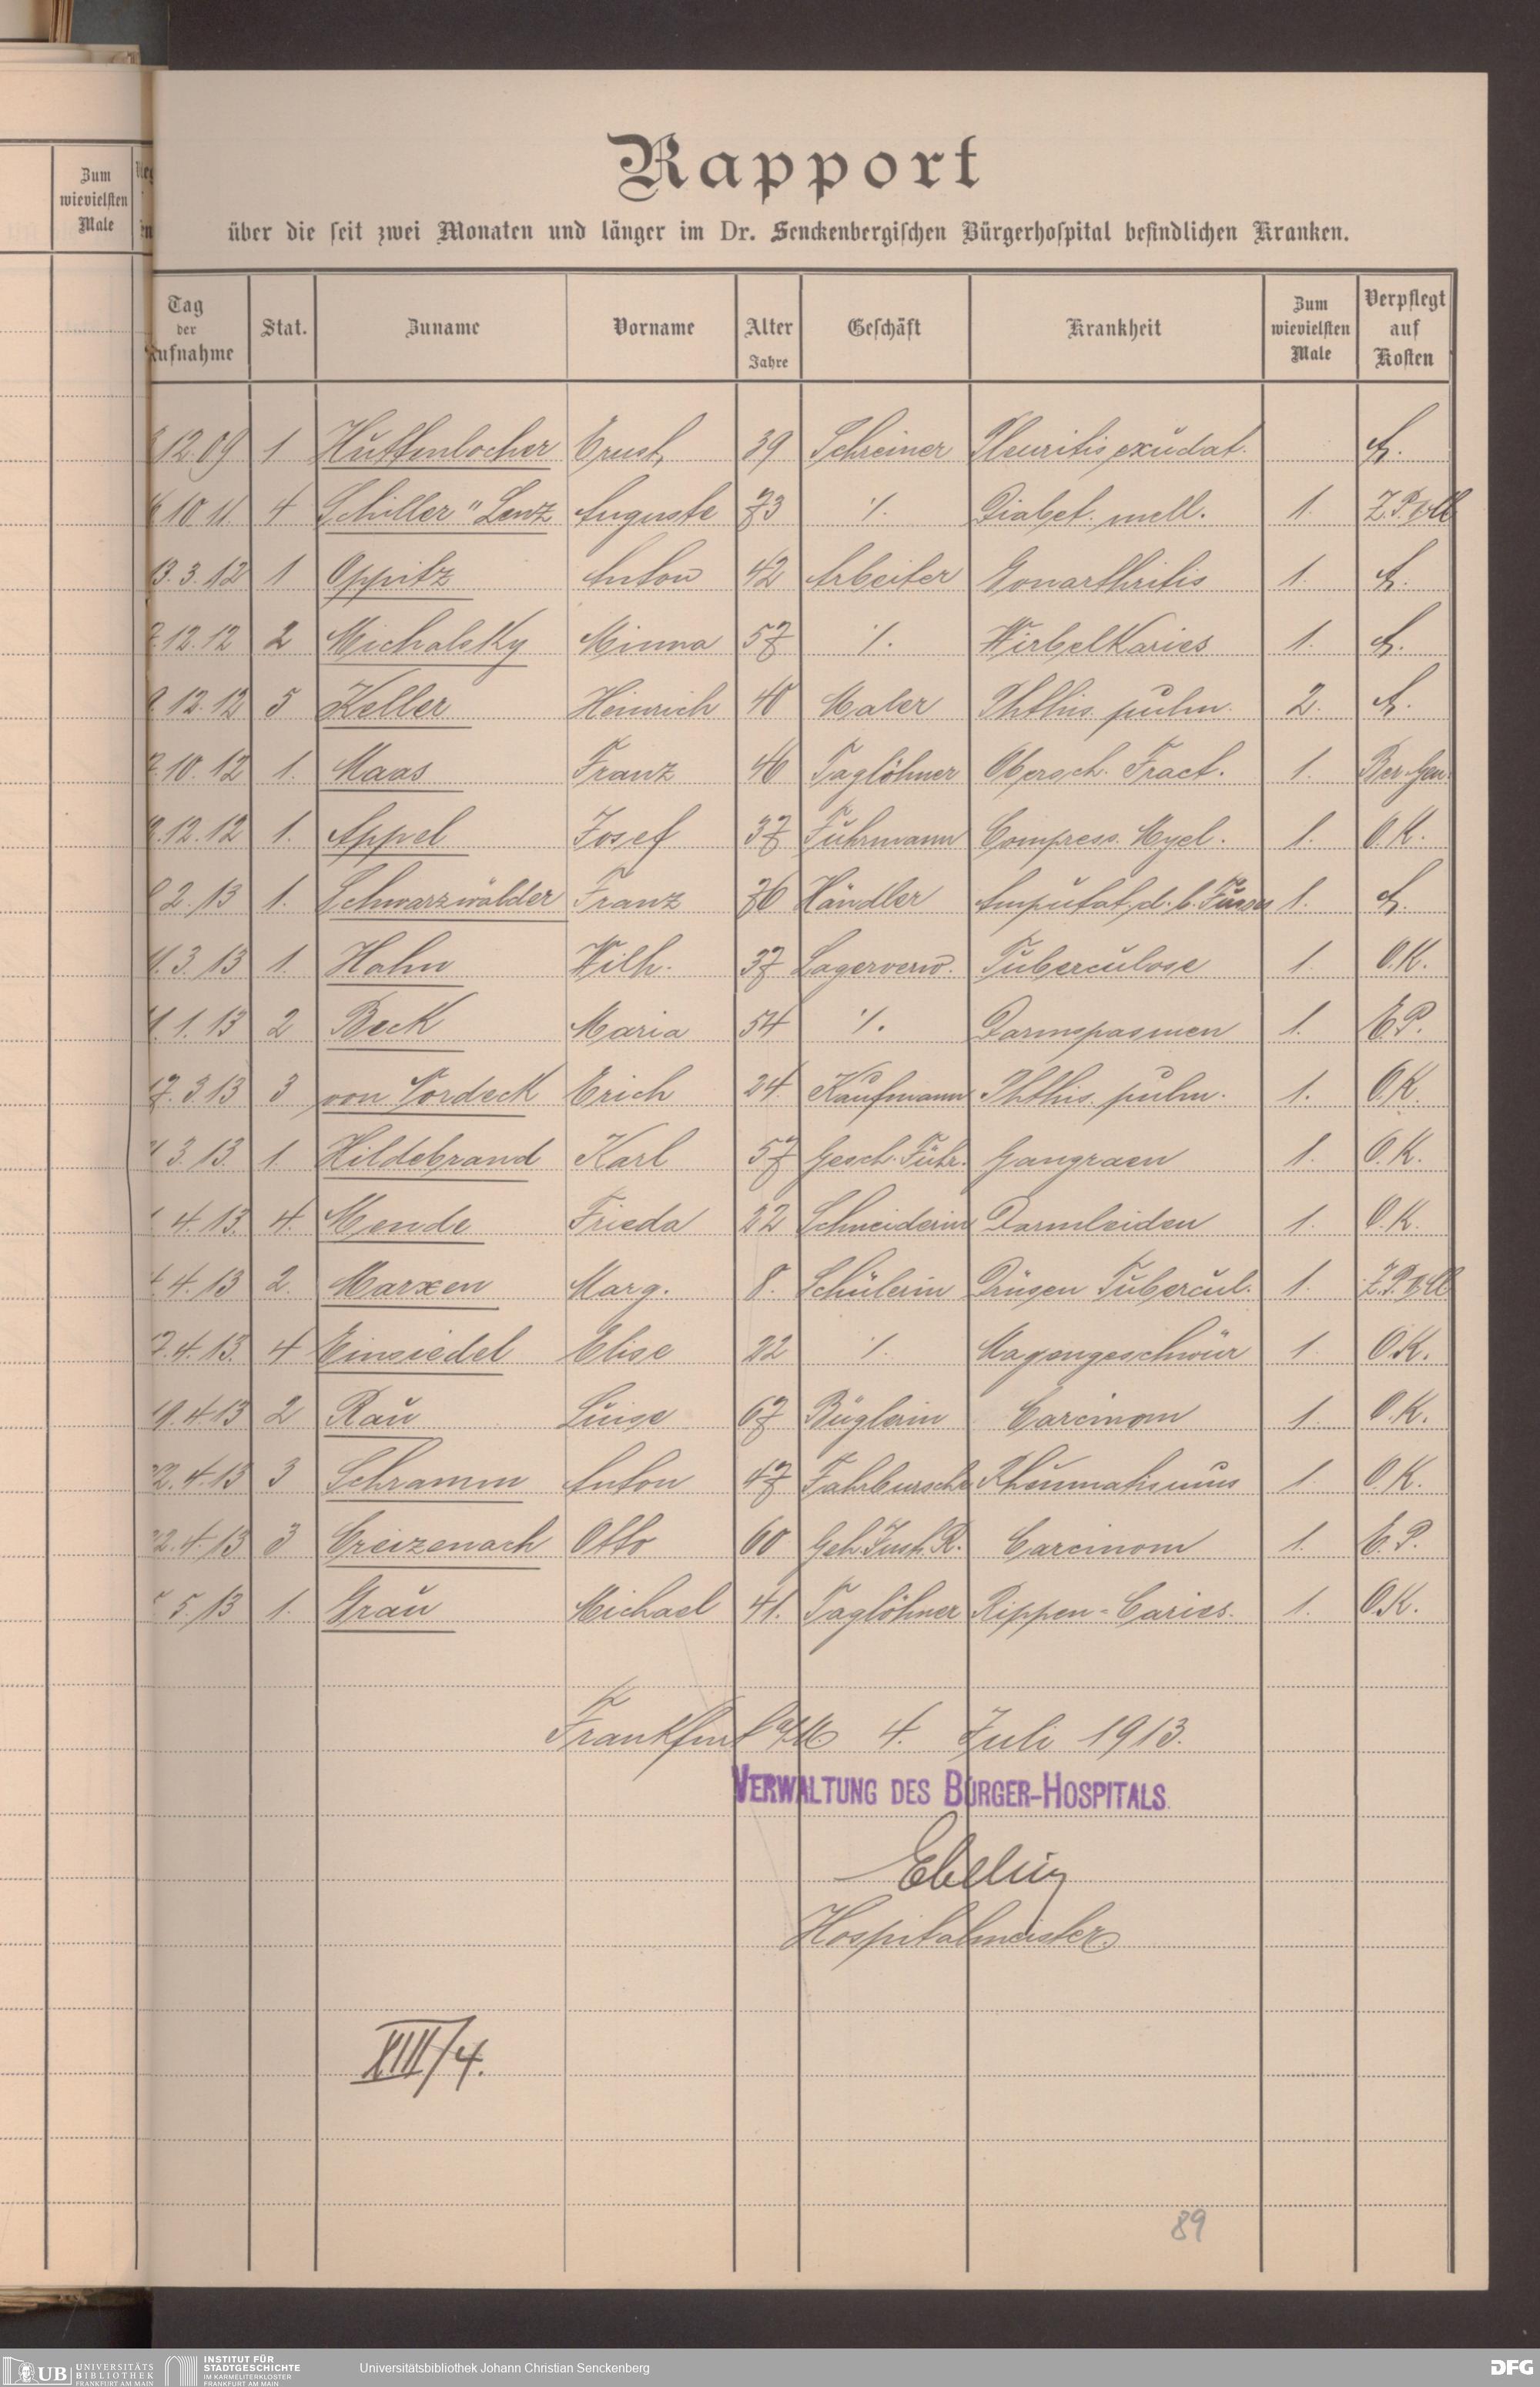 Zum
wievielsten
Male
Rapport
über die seit zwei Monaten und länger im Dr. Senckenbergischen Bürgerhospital befindlichen Kranken.
Tag der Aufnahme Stat. Zuname Vorname Alter Jahre Geschäft Krankheit Zum wievielsten Male Verpflegt auf Kosten
12.09 1 Huttenlocher Ernst 39 Schreiner Pleuritis exudat.
10 11. 4 Schiller "Lenz Auguste 73 ·/. Diabet. mell. 1.
13. 3. 12 1 Oppitz Anton 42 Arbeiter Gonarthritis 1.
12.12 2 Michalsky Minna 57 ·/. WirbelKaries 1.
12.12 5 Keller Heinrich 40 Maler Phthis. pulm. 2.
10. 12 1. Maas Franz 46 Taglöhner Obersch. Fract. 1. Ber. Gen.
12.12 1. Appel Josef 37 Fuhrmann Compress. Myel. 1. O.K.
2. 13 1. Schwarzwälder Franz 76 Händler Amputat. d. l. Fusses 1.
3. 13 1. Hahn Wilh. 37 Lagerverw. Tuberculose 1 O.K.
1. 13 2 Beck Maria 54 ·/. Darmspasmen 1. E.P.
17. 3 13 3 von Nordeck Erich 24. Kaufmann Phthis. pulm. 1. O.K.
3. 13. 1. Hildebrand Karl 57 Gesch. Führ. Gangraen 1. O.K.
4. 13. 4. Mende Frieda 22 Schneiderin Darmleiden 1. O.K.
4. 13 2. Marxen Marg. 8. Schülerin Drüsen Tubercul. 1.
7. 4. 13. 4 Einsiedel Elise 22 ·/. Magengeschwür 1. O.K.
19. 4 13 2 Rau Luise 67 Büglerin Carcinom 1. O.K.
22. 4. 13 3 Schramm Anton 47 Fahrbursche Rheumatismus 1. O.K.
22. 4. 13 3 Creizenach Otto 60 Geh. Just. R. Carcinom 1. E.P.
5. 13 1. Grau Michael 41. Taglöhner Rippen-Caries. 1. O.K.
Frankfurt a/M 4. Juli 1913.
VERWALTUNG DES BÜRGER-HOSPITALS.
Ebeling
Hospitalmeister.
XIII/4.
89
UB UNIVERSITÄTS BIBLIOTHEK FRANKFURT AM MAIN
INSTITUT FÜR STADTGESCHICHTE IM KARMELITERKLOSTER FRANKFURT AM MAIN
Universitätsbibliothek Johann Christian Senckenberg
DFG